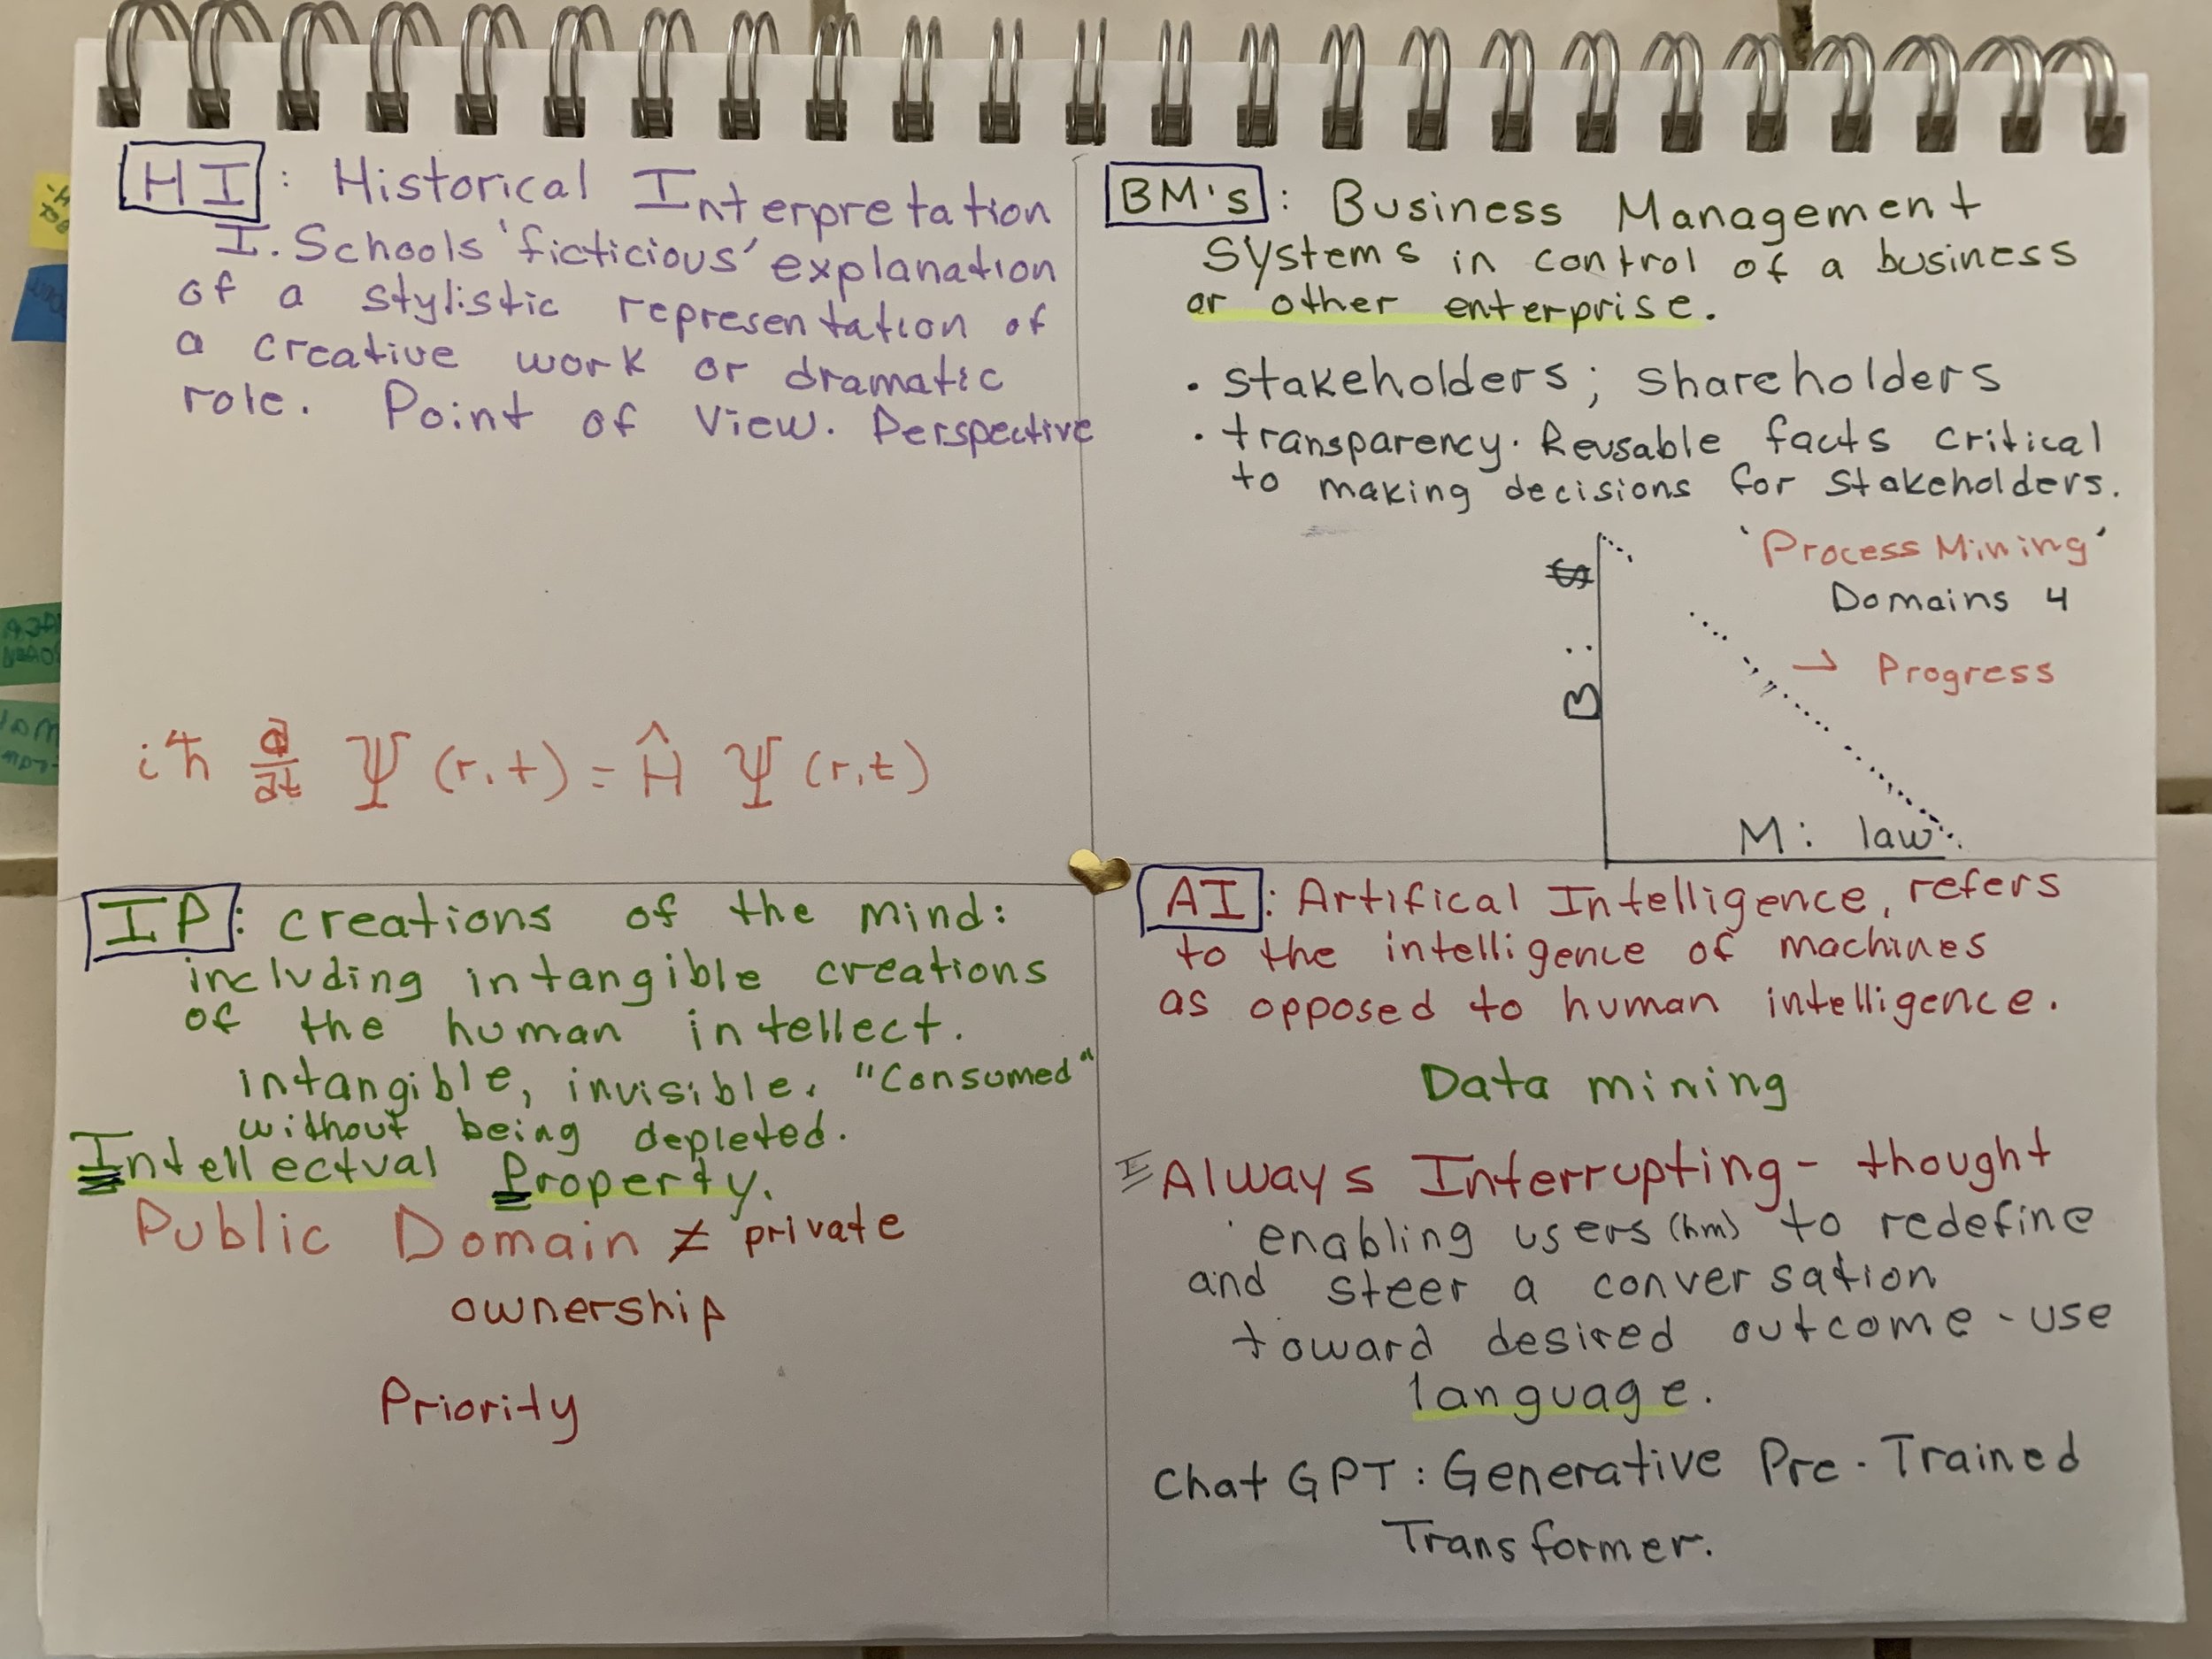 HI: Historical Interpretation
I. Schools 'ficticious' explanation
of a stylistic representation of
a creative work or dramatic
role. Point of View. Perspective
iħ ∂/∂t Ψ (r,t) = Ĥ Ψ (r,t)
BM's: Business Management
Systems in control of a business
or other enterprise.
• stakeholders; shareholders
• transparency. Reusable facts critical
to making decisions for stakeholders.
'Process Mining'
Domains 4
→ Progress
B: $
M: law
IP: creations of the mind:
including intangible creations
of the human intellect.
intangible, invisible. "Consumed"
without being depleted.
Intellectual Property.
Public Domain ≠ private
ownership
Priority
AI: Artifical Intelligence, refers
to the intelligence of machines
as opposed to human intelligence.
Data mining
Always Interrupting - thought
enabling users (hm) to redefine
and steer a conversation
toward desired outcome - use
language.
Chat GPT: Generative Pre-Trained
Transformer.